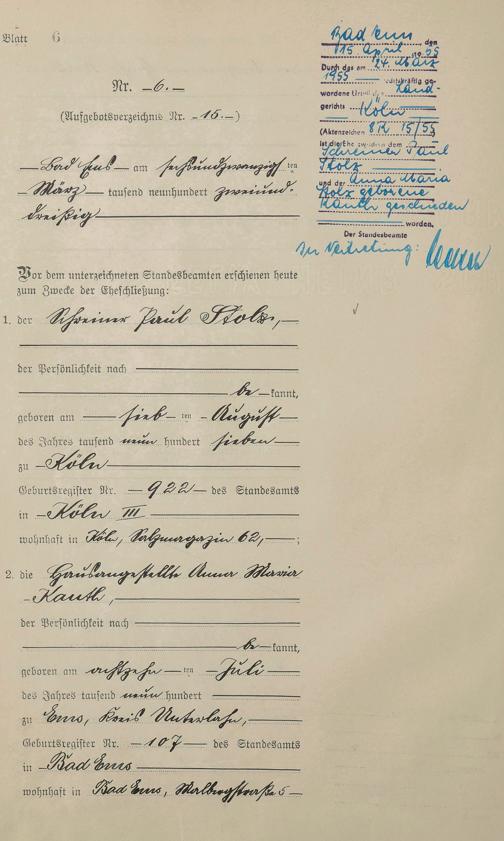 Blatt 6
Nr. 6.
(Aufgebotsverzeichnis Nr. 15.)
Bad Ems am sechsundzwanzigsten
März tausend neunhundert zweiund-
dreißig
Bad Ems, den
15. April 1955
Durch das am 24. März
1955 rechtskräftig ge-
wordene Urteil des Land-
gerichts Köln
(Aktenzeichen 8 R 15/55)
ist die Ehe zwischen dem
Schreiner Paul
Stolz
und der Anna Maria
Stolz geborene
Kauth geschieden
worden.
Der Standesbeamte
In Vertretung:
Vor dem unterzeichneten Standesbeamten erschienen heute
zum Zwecke der Eheschließung:
1. der Schreiner Paul Stolz,
der Persönlichkeit nach
be kannt,
geboren am sieb ten August
des Jahres tausend neun hundert sieben
zu Köln
Geburtsregister Nr. 922 des Standesamts
in Köln III
wohnhaft in Köln, Salzmagazin 62, ;
2. die Hausangestellte Anna Maria
Kauth,
der Persönlichkeit nach
be kannt,
geboren am achtzehn ten Juli
des Jahres tausend neun hundert
zu Ems, Kreis Unterlahn,
Geburtsregister Nr. 107 des Standesamts
in Bad Ems
wohnhaft in Bad Ems, Malbergstraße 5